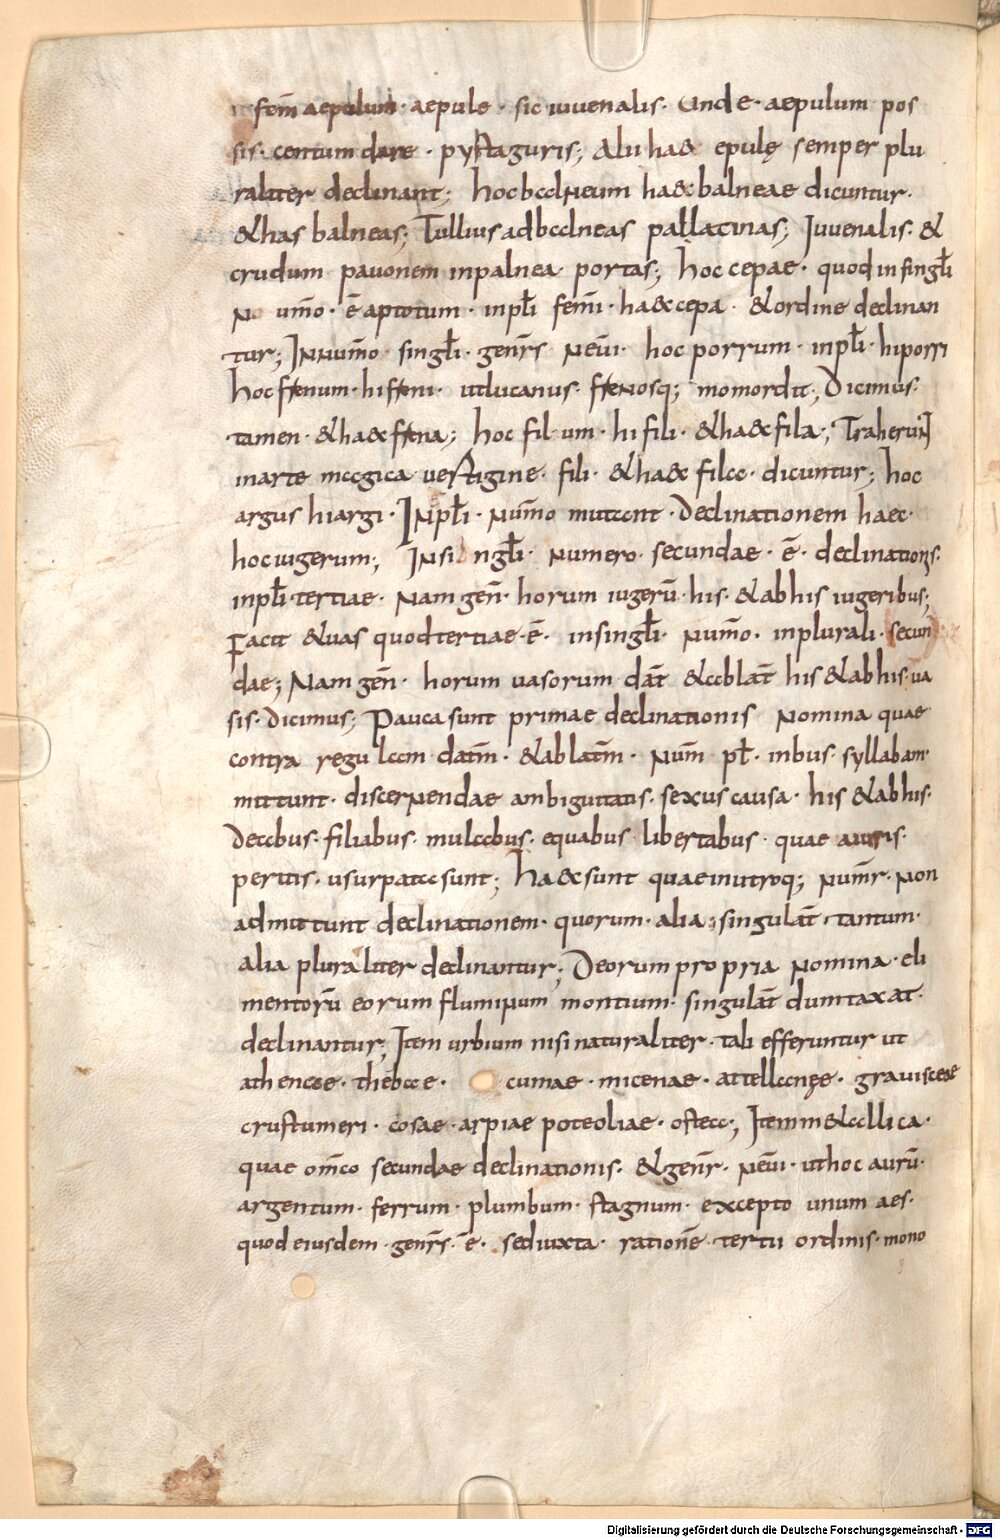 fem̄ aepulum · aepule · sic iuuenalis · Unde · aepulum pos
sis · centum dare · pystaguris; Alii ha& epulę semper plu
raliter declinant; hoc balneum ha&c balneae dicuntur ·
& has balneas; Tullius ad balneas pallacinas; Juuenalis · &
crudum pauonem in palnea portas; hoc cepae · quod in singl̄i
No um̄o · ē aptotum · in pl̄i fem̄i · ha&c cepa · & ordine declinan
tur; IN Num̄o singl̄i · gen̄rs Neūi · hoc porrum · in pl̄i · hi porri
hoc frenum · hi freni · ut lucanus · freNosq; momordit; Dicimus ·
tamen · & ha&c frena; hoc fil um · hi fili · & ha&c fila; Traherunt
in arte magica uestigine · fili · & ha&c fila · dicuntur; hoc
argus hi argi · IN pl̄i · Num̄o mutant · Declinationem haec ·
hoc iugerum; IN si ngl̄i · Numero · secundae · ē · declinationis ·
in pl̄i · tertiae · Nam gen̄ · horum iugerū · his · & ab his iugeribus;
Facit & uas quod tertiae · ē · in singl̄i · Num̄o · in plurali · secun
dae; Nam gen̄ · horum uasorum dat̄ & ablat̄ his & ab his · ua
sis · dicimus; Pauca sunt primae declinationis Nomina quae
contra regulam datm̄ · & ablatm̄ · Num̄ pl̄ · in bus · syllabam
mittunt · discerNendae ambiguitatis · sexus causa · his & ab his ·
Deabus · filiabus · mulabus · equabus libertabus · quae a iuris ·
peritis · usurpata sunt; Ha&c sunt quae in utroq; Num̄r · Non
admittunt declinationem · quorum · alia; singulat̄ · tantum ·
alia pluraliter declinantur; Deorum propria Nomina · eli
mentorū eorum flumiNum montium · singulat̄ dumtaxat ·
declinantur; Item urbium nisi naturaliter · tali efferuntur ut
athenae · thebae · cumae · micenae · attellanęe · grauisceae
crustumeri · cosae · arpiae poteoliae · ostea; Item m&allica ·
quae om̄ea secundae declinationis · & gen̄r · Neūi · ut hoc aurū ·
argentum · ferrum · plumbum · stagnum · excepto unum aes ·
quod eiusdem · gen̄rs · ē · sed iuxta · rationē · tertii ordinis · mono
Digitalisierung gefördert durch die Deutsche Forschungsgemeinschaft - DFG